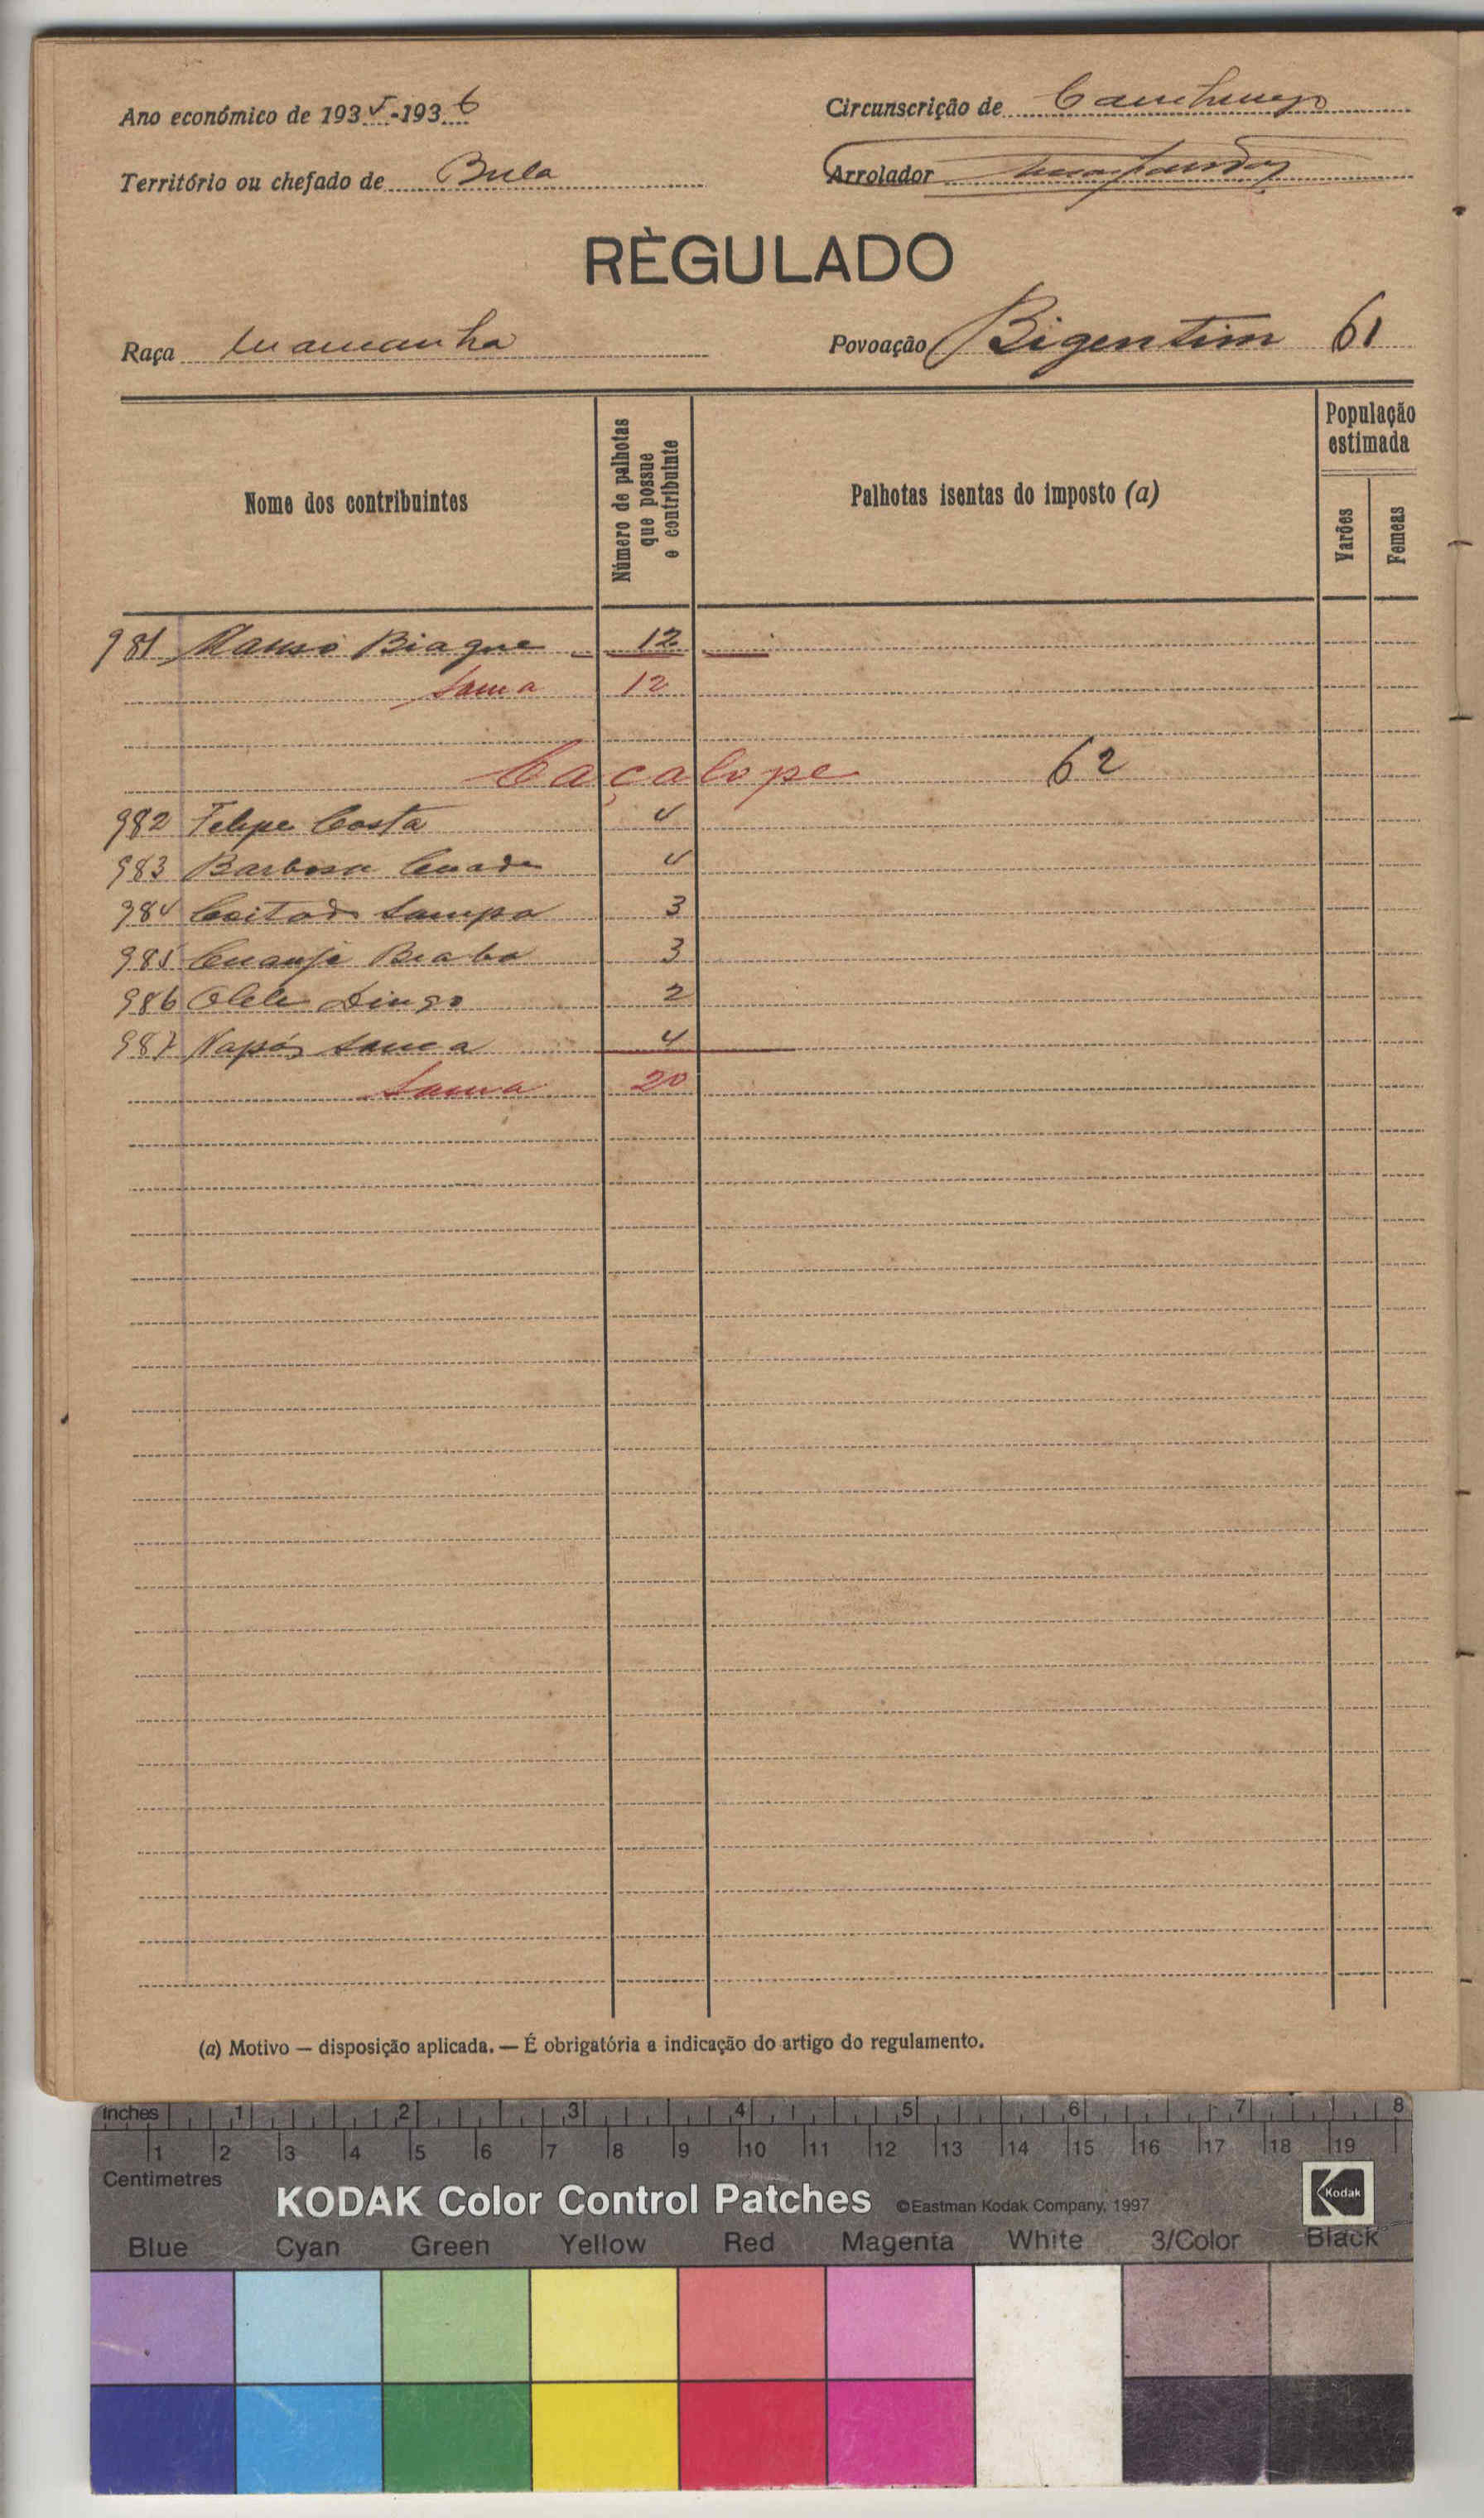 Ano económico de 1935-1936
Circunscrição de Canchungo
Território ou chefado de Bula
Arrolador
RÈGULADO
Raça Mamcanha
Povoação Bigentim 61
Nome dos contribuintes
Número de palhotas que possue o contribuinte
Palhotas isentas do imposto (a)
População estimada
Varões
Femeas
981 Mauso Biague 12
Soma 12
Caçalope 62
982 Felipe Costa 4
983 Barbosa 4
984 Coitado Sampa 3
985 3
986 Olele Dingo 2
987 Napós 4
Soma 20
(a) Motivo — disposição aplicada. — É obrigatória a indicação do artigo do regulamento.
Inches 1 2 3 4 5 6 7 8
1 2 3 4 5 6 7 8 9 10 11 12 13 14 15 16 17 18 19
Centimetres
KODAK Color Control Patches ©Eastman Kodak Company, 1997 Kodak
Blue Cyan Green Yellow Red Magenta White 3/Color Black